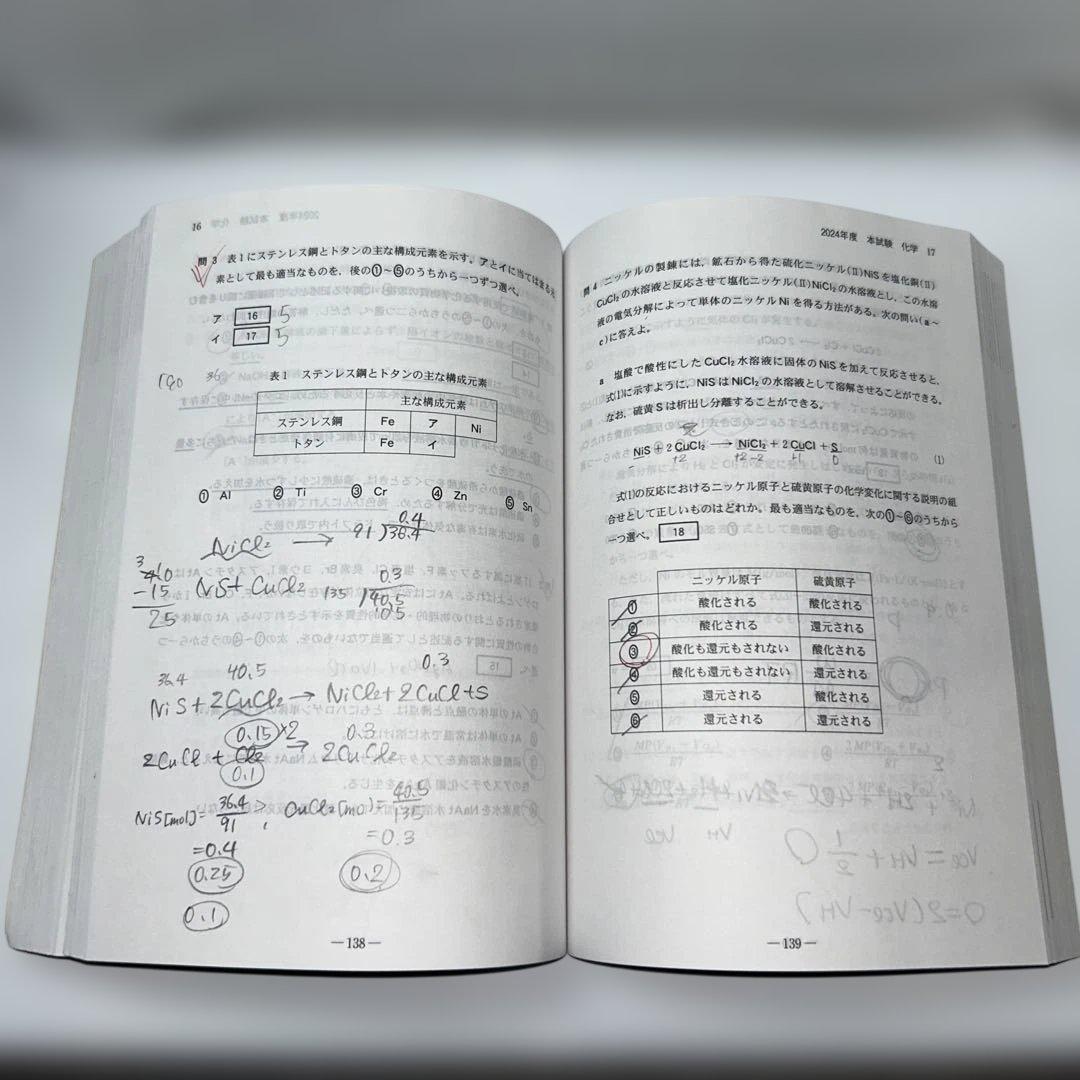 16
問3 表1にステンレス鋼とトタンの主な構成元素を示す。アとイに当てはまる元
素として最も適当なものを、後の①~⑤のうちから一つずつ選べ。
ア 16 5
イ 17 5
表1 ステンレス鋼とトタンの主な構成元素
主な構成元素
ステンレス鋼 Fe ア Ni
トタン Fe イ
① Al ② Ti ③ Cr ④ Zn ⑤ Sn
NiCl₂ →
0.4
91)36.4
-15
25
NiS+CuCl₂
0.3
135)40.5
36.4 40.5 0.3
NiS+2CuCl₂→NiCl₂+2CuCl+S
0.15×2 0.3
2CuCl+Cl₂→2CuCl₂
0.1
NiS[mol]=36.4/91, CuCl₂[mol]=40.5/135
=0.4 =0.3
0.25 0.2
0.1
—138—
2024年度 本試験 化学 17
問4 ニッケルの製錬には、鉱石から得た硫化ニッケル(Ⅱ)NiSを塩化銅(Ⅱ)
CuCl₂の水溶液と反応させて塩化ニッケル(Ⅱ)NiCl₂の水溶液とし、この水溶
液の電気分解によって単体のニッケルNiを得る方法がある。次の問い(a~
c)に答えよ。
a 塩酸で酸性にしたCuCl₂水溶液に固体のNiSを加えて反応させると、
式(1)に示すように、NiSはNiCl₂の水溶液として溶解させることができる。
なお、硫黄Sは析出し分離することができる。
NiS + 2 CuCl₂ → NiCl₂ + 2 CuCl + S (1)
+2 +2 -2 +1 0
式(1)の反応におけるニッケル原子と硫黄原子の化学変化に関する説明の組
合せとして正しいものはどれか。最も適当なものを、次の①~⑥のうちから
一つ選べ。 18
ニッケル原子 硫黄原子
① 酸化される 酸化される
② 酸化される 還元される
③ 酸化も還元もされない 酸化される
④ 酸化も還元もされない 還元される
⑤ 還元される 酸化される
⑥ 還元される 還元される
—139—